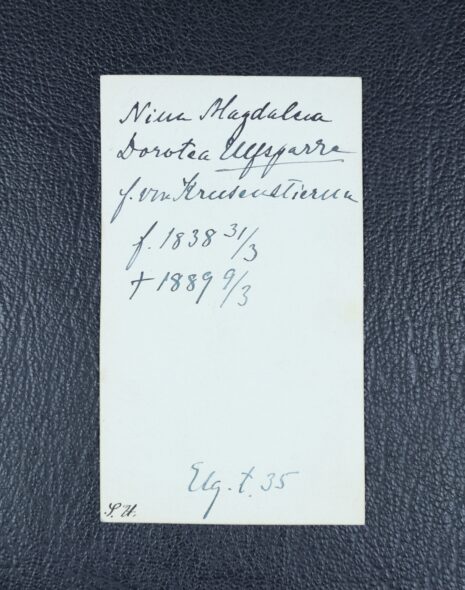 Nina Magdalena
Dorotea Ulfsparre
f. von Krusenstierna
f. 1838 31/3
† 1889 9/3
Elg. t. 35
S. U.